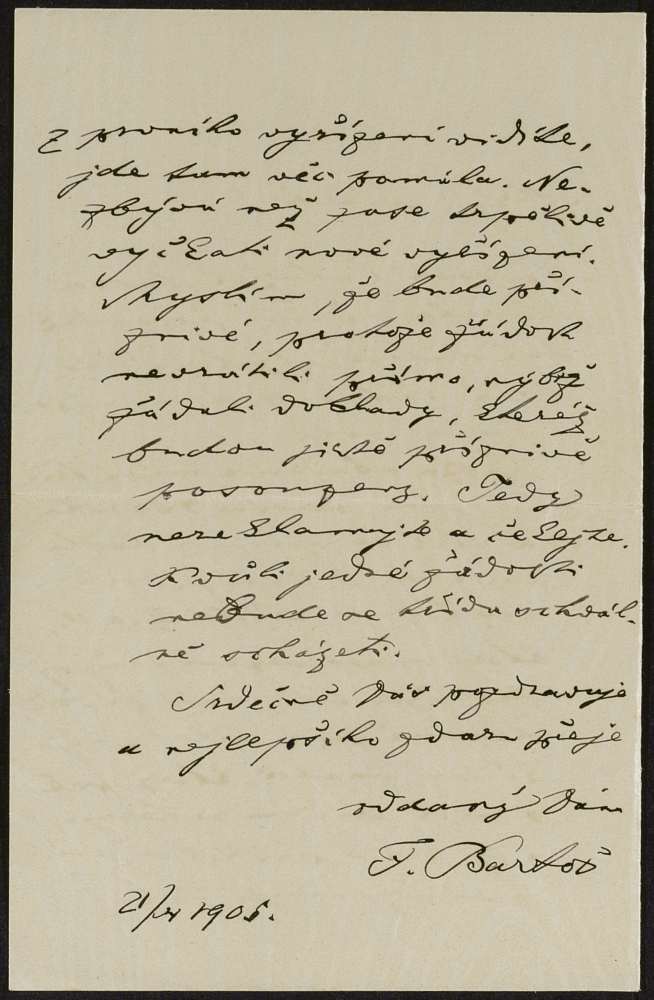 z prvního vyřízení vidíte,
jde tam věc pomálu. Ne-
zbývá než zase trpělivě
vyčkati nové vyřízení.
Myslím, že bude pří-
znivé, protože žádost
nevrátili přímo, nýbrž
žádali doklady, kteréž
budou jistě příznivě
posouzeny. Tedy
nereklamujte a čekejte.
Kvůli jedné žádosti
nebude se třída schvál-
ně scházeti.
Srdečně Vás pozdravuje
a nejlepšího zdaru přeje
oddaný Vám
F. Bartoš
1905.